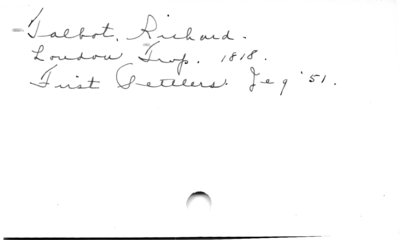 Talbot, Richard.
London Twp. 1818.
First Settlers. '51.